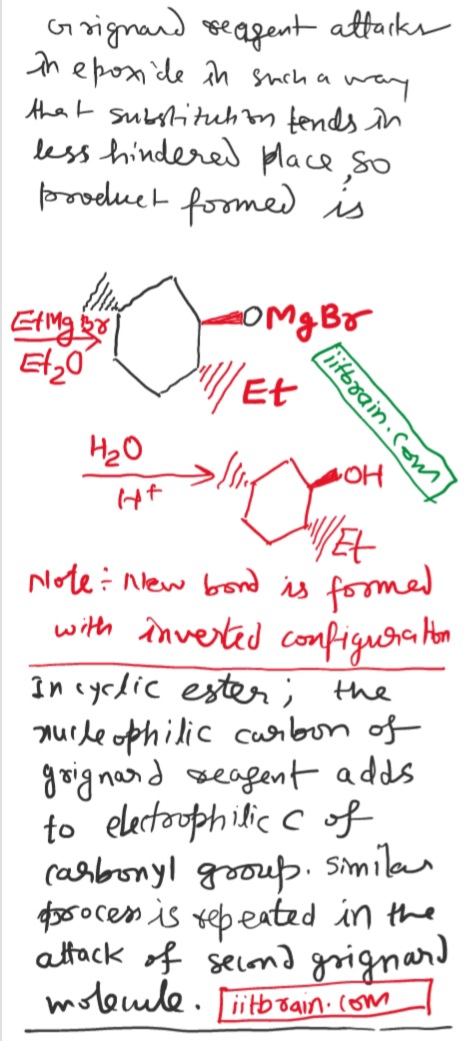 Grignard reagent attacks
in epoxide in such a way
that substitution tends in
less hindered place, so
product formed is
EtMgBr
Et₂O
OMgBr
Et
iitbrain.com
H₂O
H⁺
OH
Et
Note :- New bond is formed
with inverted configuration
In cyclic ester; the
nucleophilic carbon of
grignard reagent adds
to electrophilic C of
carbonyl group. Similar
process is repeated in the
attack of second grignard
molecule.
iitbrain.com